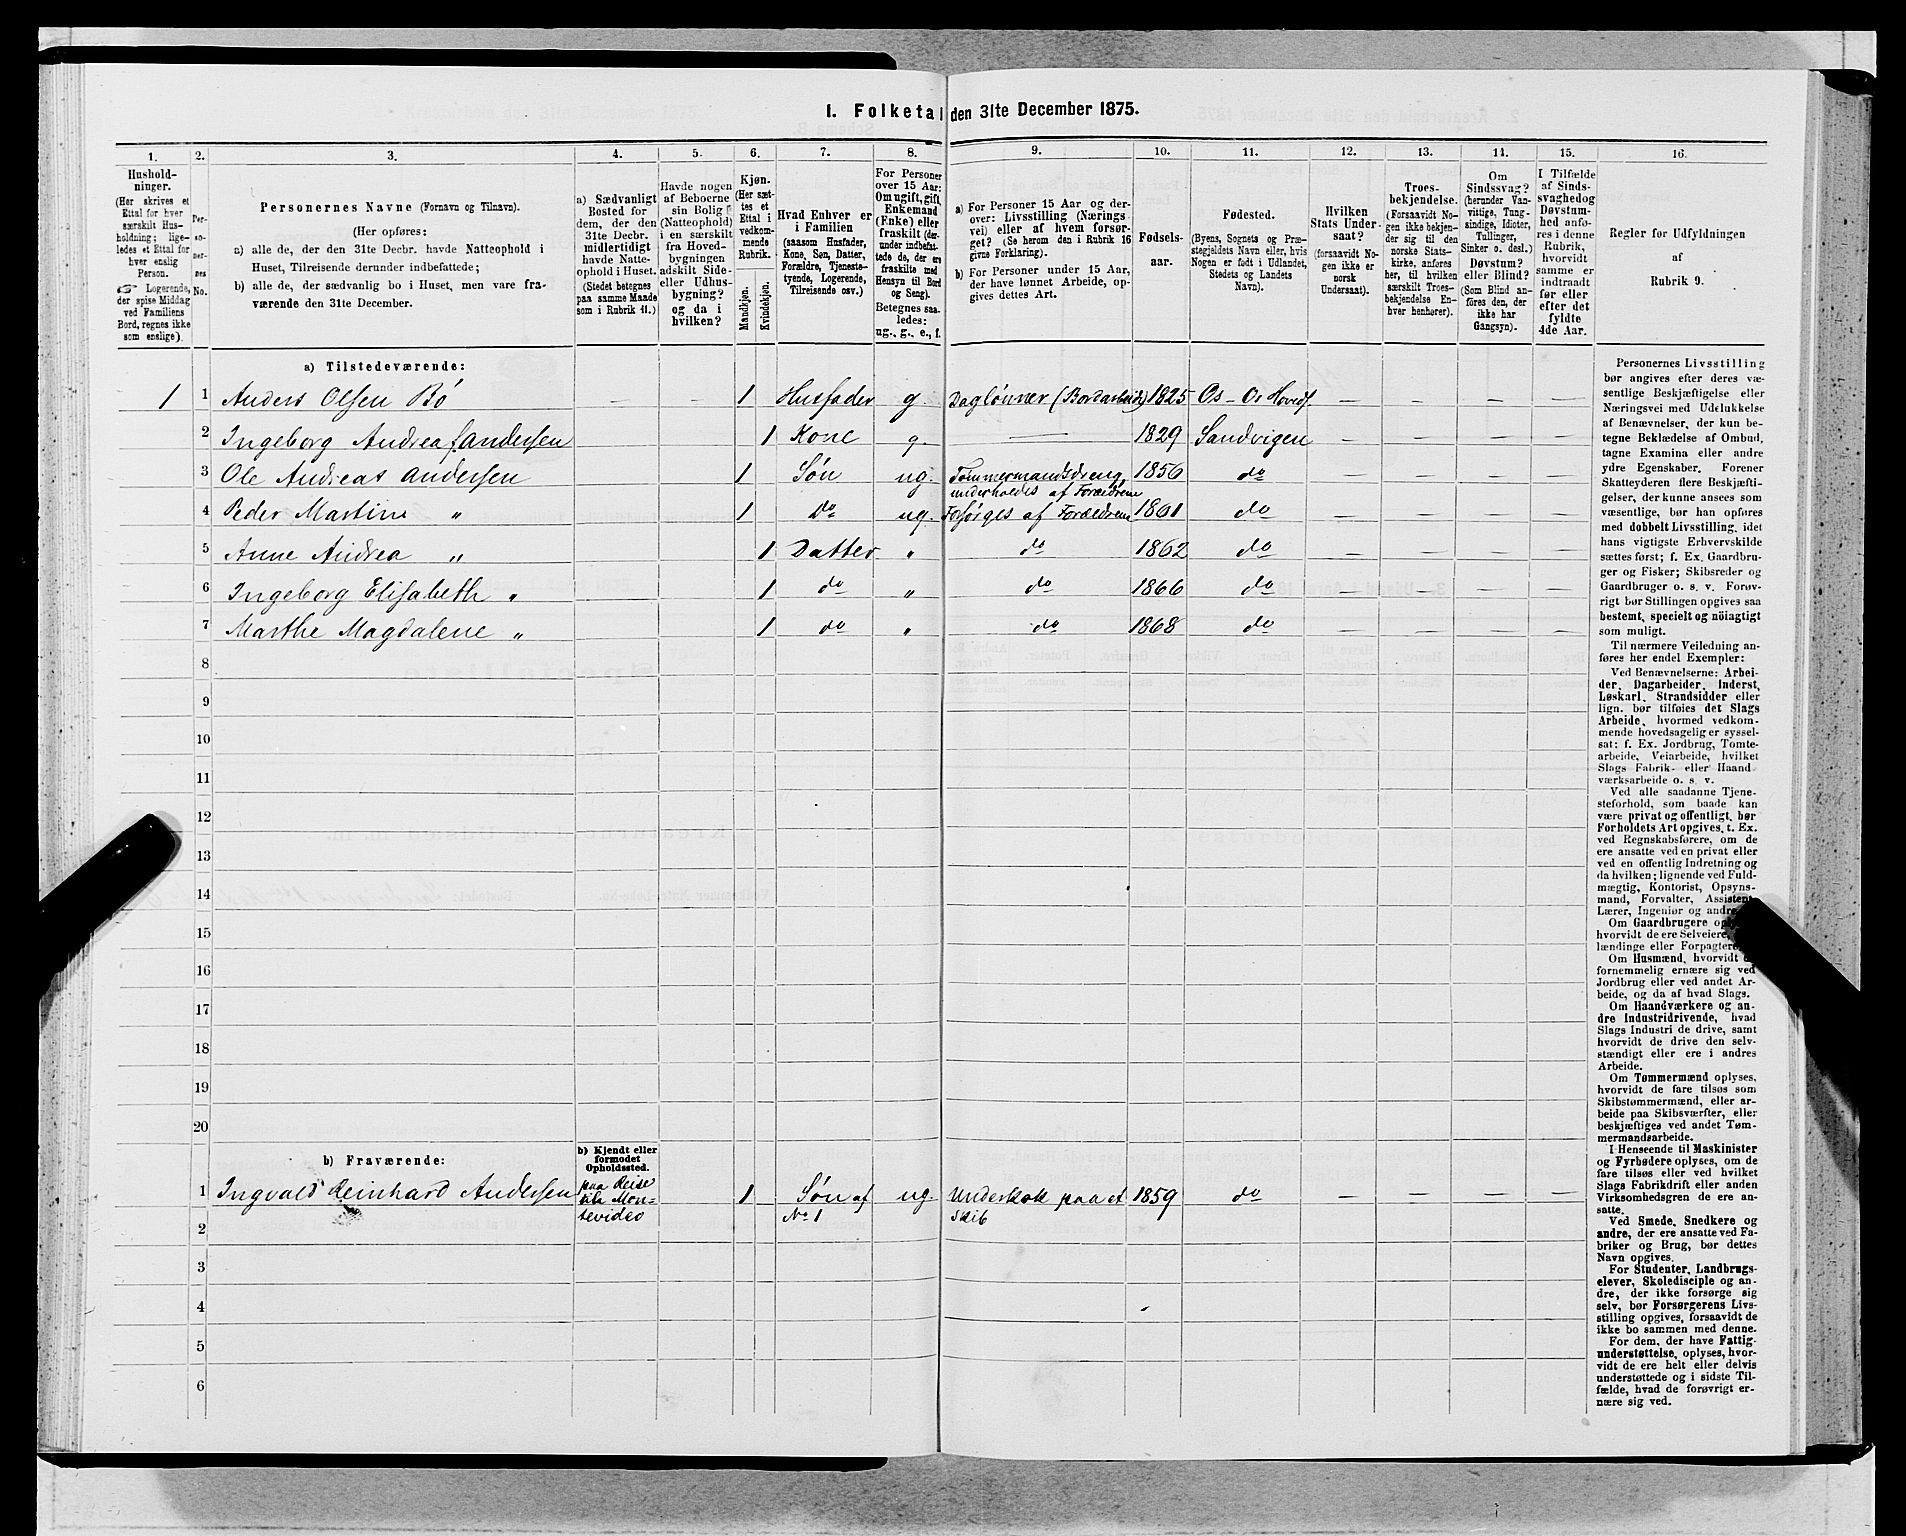 1. Folketal den 31te December 1875.
1. 2. 3. 4. 5. 6. 7. 8. 9. 10. 11. 12. 13. 14. 15. 16.
Hushold-
ninger.
(Her skrives et
Ettal for hver
særskilt Hus-
holdning; lige-
ledes et Ettal for
hver enslig
Person.
☞ Logerende,
der spise Middag
ved Familiens
Bord, regnes ikke
som enslige).
Per-
so-
ner-
nes
No.
Personernes Navne (Fornavn og Tilnavn).
(Her opføres:
a) alle de, der den 31te Decbr. havde Natteophold i
Huset, Tilreisende derunder indbefattede;
b) alle de, der sædvanlig bo i Huset, men vare fra-
værende den 31te December.
a) Sædvanligt
Bosted for
dem, der den
31te Decbr.
midlertidigt
havde Natte-
ophold i Huset.
(Stedet betegnes
paa samme Maade
som i Rubrik 11.)
Havde nogen
af Beboerne
sin Bolig
(Natteophold)
i en særskilt
fra Hoved-
bygningen
adskilt Side-
eller Udhus-
bygning?
og da i
hvilken?
Kjøn.
(Her sæt-
tes et
Ettal i
vedkom-
mende
Rubrik.
Mandkjøn.
Kvindekjøn.
Hvad Enhver er
i Familien
(saasom Husfader,
Kone, Søn, Datter,
Forældre, Tjeneste-
tyende, Logerende,
Tilreisende osv.)
For Personer
over 15 Aar:
Om ugift, gift,
Enkemand
(Enke) eller
fraskilt (der-
under indbefat-
tede de, der ere
fraskilte med
Hensyn til Bord
og Seng).
Betegnes saa-
ledes:
ug., g., e., f.
a) For Personer 15 Aar og der-
over: Livsstilling (Nærings-
vei) eller af hvem forsør-
get? (Se herom den i Rubrik 16
givne Forklaring).
b) For Personer under 15 Aar,
der have lønnet Arbeide, op-
gives dettes Art.
Fødsels-
aar.
Fødested.
(Byens, Sognets og Præ-
stegjeldets Navn eller, hvis
Nogen er født i Udlandet,
Stedets og Landets
Navn).
Hvilken
Stats Under-
saat?
(forsaavidt No-
gen ikke er
norsk
Undersaat).
Troes-
bekjendelse.
(Forsaavidt No-
gen ikke bekjen-
der sig til den
norske Stats-
kirke, anføres
her, til hvilken
særskilt Troes-
bekjendelse En-
hver henhører).
Om
Sindssvag?
(herunder Van-
vittige, Tung-
sindige, Idioter,
Tullinger,
Sinker o. desl.)
Døvstum?
eller Blind?
(Som Blind an-
føres den, der
ikke har
Gangsyn).
I Tilfælde
af Sinds-
svaghed og
Døvstum-
hed anfø-
res i denne
Rubrik,
hvorvidt
samme er
indtraadt
før eller
efter det
fyldte
4de Aar.
Regler for Udfyldningen
af
Rubrik 9.
a) Tilstedeværende:
1 1 Anders Olsen Bö — — 1 Husfader g Daglønner (Bordarbeide) 1825 Os - Os Hoved — — — —
2 Ingeborg Andrea f. Andersen — — 1 Kone g. — 1829 Sandvigen — — — —
3 Ole Andreas Andersen — — 1 Søn ug. Tømmermandsdreng, underholdes af Forældrene 1856 do — — — —
4 Peder Martin " 1 Do ug. Forsørges af Forældrene 1861 do — — — —
5 Anne Andrea " 1 Datter " do 1862 do — — — —
6 Ingeborg Elisabeth " 1 do " do 1866 do — — — —
7 Marthe Magdalene " 1 do " do 1868 do — — — —
8
9
10
11
12
13
14
15
16
17
18
19
20
b) Fraværende:
b) Kjendt eller
formodet
Opholdssted.
1 Ingvald Reinhard Andersen paa Reise til Mon=tevideo 1 Søn af No 1 ug. Underkok paa et Skib 1859 do
2
3
4
5
6
Personernes Livsstilling
bør angives efter deres væ-
sentlige Beskjæftigelse eller
Næringsvei med Udelukkelse
af Benævnelser, der kun be-
tegne Beklædelse af Ombud,
tagne Examina eller andre
ydre Egenskaber. Forener
Skatteyderen flere Beskjæfti-
gelser, der kunne ansees som
væsentlige, bør han opføres
med dobbelt Livsstilling, idet
hans vigtigste Erhvervskilde
sættes først; f. Ex. Gaardbru-
ger og Fisker; Skibsreder og
Gaardbruger o. s. v. Forøv-
rigt bør Stillingen opgives saa
bestemt, specielt og nöiagtigt
som muligt.
Til nærmere Veiledning an-
føres her endel Exempler:
Ved Benævnelserne: Arbei-
der, Dagarbeider, Inderst,
Løskarl, Strandsidder eller
lign. bør tilføies det Slags
Arbeide, hvormed vedkom-
mende hovedsagelig er syssel-
sat; f. Ex. Jordbrug, Tomte-
arbeide, Veiarbeide, hvilket
Slags Fabrik- eller Haand-
værksarbeide o. s. v.
Ved alle saadanne Tjene-
steforhold, som baade kan
være privat og offentligt, bør
Forholdets Art opgives, t. Ex.
ved Regnskabsførere, om de
ere ansatte ved en privat eller
ved en offentlig Indretning og
da hvilken; lignende ved Fuld-
mægtig, Kontorist, Opsyns-
mand, Forvalter, Assistent,
Lærer, Ingeniør og andre.
Om Gaardbrugere
hvorvidt de ere Selveiere,
lændinge eller Forpagtere.
Om Husmænd, hvorvidt
fornemmelig ernære sig ved
Jordbrug eller ved andet Ar-
beide, og da af hvad Slags.
Om Haandværkere og an-
dre Industridrivende, hvad
Slags Industri de drive, samt
hvorvidt de drive den selv-
stændigt eller ere i andres
Arbeide.
Om Tømmermænd oplyses,
hvorvidt de fare tilsøs som
Skibstømmermænd, eller ar-
beide paa Skibsværfter, eller
beskjæftiges ved andet Tøm-
mermandsarbeide.
I Henseende til Maskinister
og Fyrbødere oplyses, om de
fare tilsøs eller ved hvilket
Slags Fabrikdrift eller anden
Virksomhedsgren de ere an-
satte.
Ved Smede, Snedkere og
andre, der ere ansatte ved Fa-
briker og Brug, bør dettes
Navn opgives.
For Studenter, Landbrugs-
elever, Skoledisciple og an-
dre, der ikke forsørge sig
selv, bør Forsørgerens Livs-
stilling opgives, forsaavidt de
ikke bo sammen med denne.
For dem, der have Fattig-
understøttelse, oplyses, hvor-
vidt de ere helt eller delvis
understøttede og i sidste Til-
fælde, hvad de forøvrigt er-
nære sig ved.